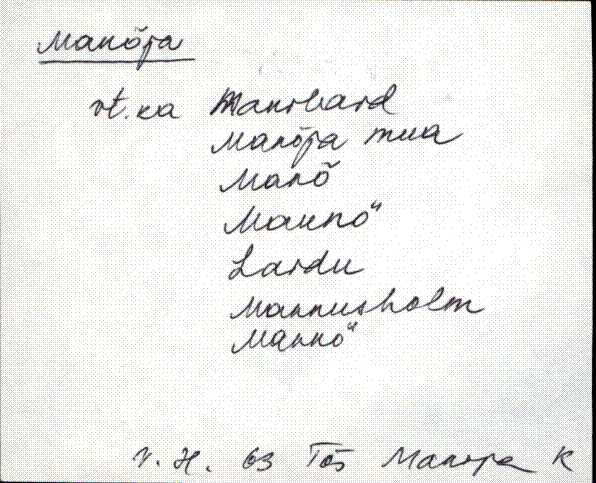 Manõja
vt. ka Manrbard
Manõja mua
Manõ
Mannö
Lardu
Mannusholm
Mannö
V. H. 63 Tõs Manõja K